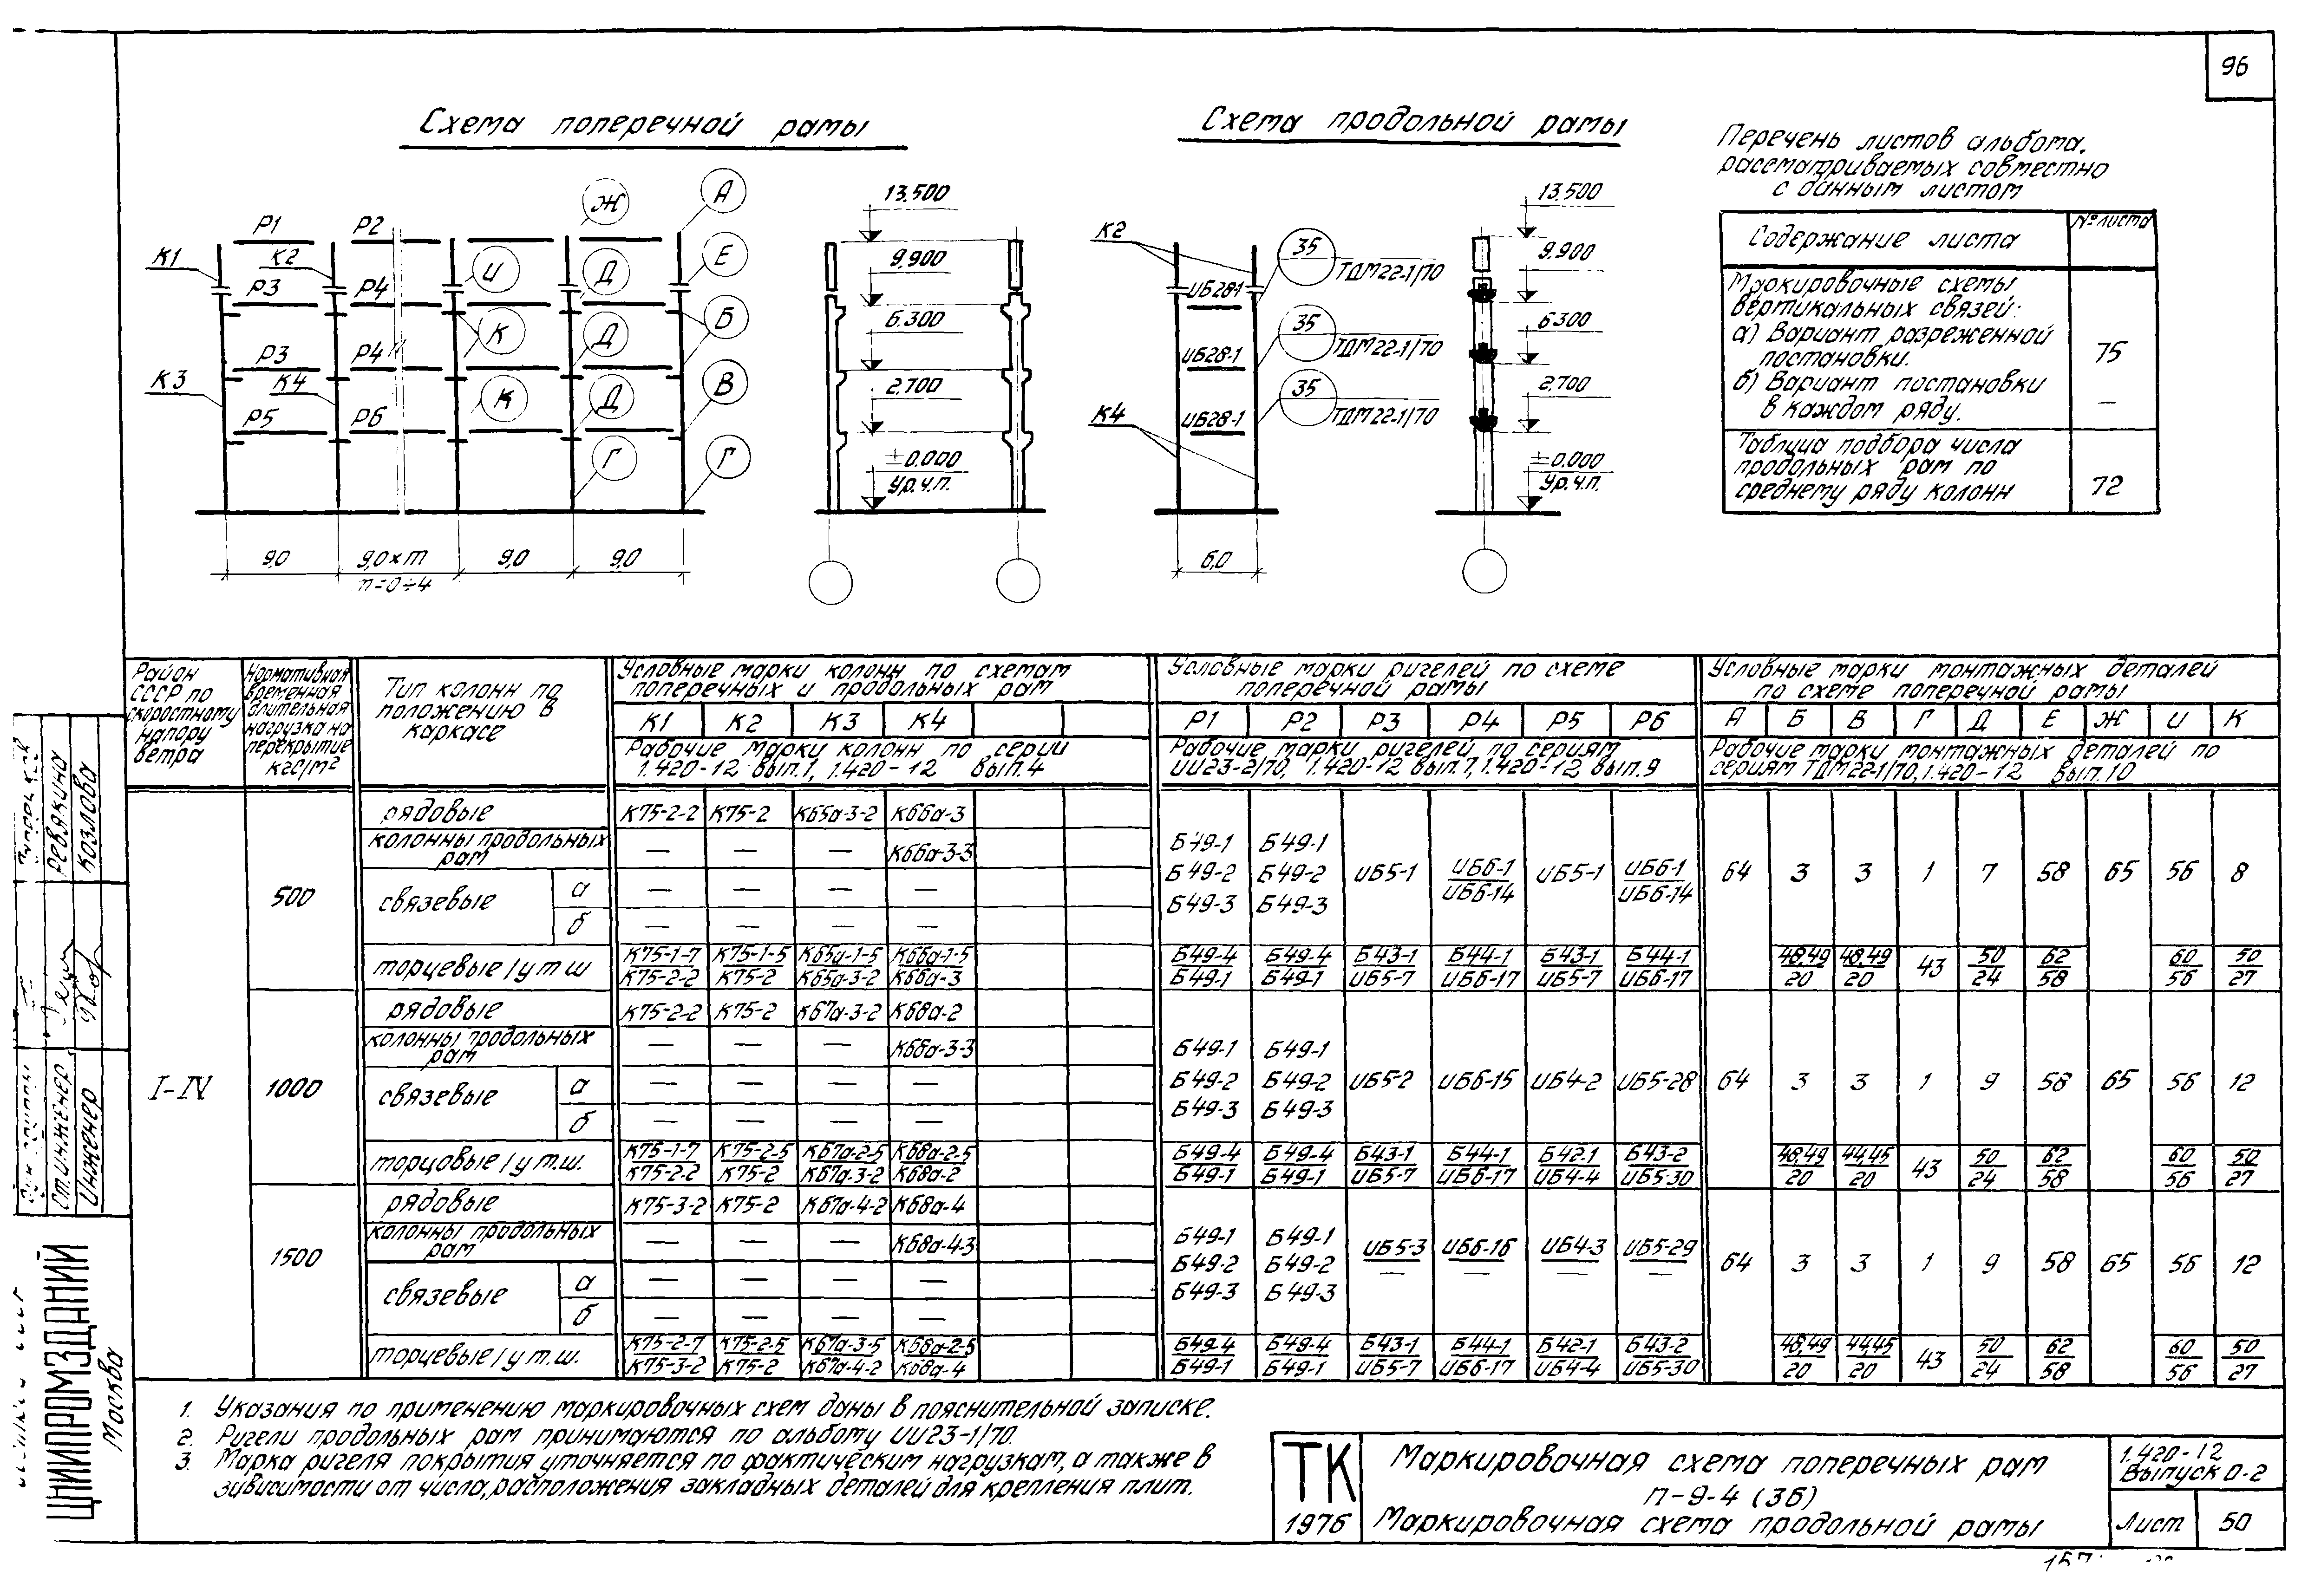 96
Схема поперечной рамы
Схема продольной рамы
Перечень листов альбома,
рассматриваемых совместно
с данным листом
Содержание листа № листа
Маркировочные схемы
вертикальных связей:
а) Вариант разреженной
постановки. 75
б) Вариант постановки
в каждом ряду. —
Таблица подбора числа
продольных рам по
среднему ряду колонн 72
Р1 Р2 Ж А
К1 К2 И Д Е
Р3 Р4 К Д Б
Р3 Р4
К3 К4 К Д В
Р5 Р6
Г Г
9,0 9,0×m 9,0 9,0
m=0÷4
13.500
9.900
6.300
2.700
±0.000
Ур.ч.п.
К2 35 ТДМ22-1/70
ИБ28-1
35 ТДМ22-1/70
ИБ28-1
35 ТДМ22-1/70
К4 ИБ28-1
6,0
13.500
9.900
6.300
2.700
±0.000
Ур.ч.п.
Район
СССР по
скоростному
напору
ветра
Нормативная
временная
длительная
нагрузка на
перекрытие
кгс/м²
Тип колонн по
положению в
каркасе
Условные марки колонн по схемам
поперечных и продольных рам
К1 К2 К3 К4
Рабочие марки колонн по серии
1.420-12 вып.1, 1.420-12 вып.4
Условные марки ригелей по схеме
поперечной рамы
Р1 Р2 Р3 Р4 Р5 Р6
Рабочие марки ригелей по сериям
ИИ23-2/70, 1.420-12 вып.7, 1.420-12 вып.9
Условные марки монтажных деталей
по схеме поперечной рамы
А Б В Г Д Е Ж И К
Рабочие марки монтажных деталей по
сериям ТДМ22-1/70, 1.420-12 вып.10
I-IV
500
рядовые К75-2-2 К75-2 К65а-3-2 К66а-3
колонны продольных
рам — — — К66а-3-3
связевые а — — — —
б — — — —
Б49-1 Б49-1
Б49-2 Б49-2 ИБ5-1 ИБ6-1 ИБ5-1 ИБ6-1 64 3 3 1 7 58 65 56 8
ИБ6-14 ИБ6-14
Б49-3 Б49-3
торцевые/у т.ш К75-1-7 К75-1-5 К65а-1-5 К66а-1-5 Б49-4 Б49-4 Б43-1 Б44-1 Б43-1 Б44-1 48,49 48,49 43 50 62 60 50
К75-2-2 К75-2 К65а-3-2 К66а-3 Б49-1 Б49-1 ИБ5-7 ИБ6-17 ИБ5-7 ИБ6-17 20 20 24 58 56 27
1000
рядовые К75-2-2 К75-2 К67а-3-2 К68а-2
колонны продольных
рам — — — К68а-3-3
связевые а — — — —
б — — — —
Б49-1 Б49-1
Б49-2 Б49-2 ИБ5-2 ИБ6-15 ИБ4-2 ИБ5-28 64 3 3 1 9 58 65 56 12
Б49-3 Б49-3
торцовые/у т.ш. К75-1-7 К75-2-5 К67а-2-5 К68а-2-5 Б49-4 Б49-4 Б43-1 Б44-1 Б42-1 Б43-2 48,49 44,45 43 50 62 60 50
К75-2-2 К75-2 К67а-3-2 К68а-2 Б49-1 Б49-1 ИБ5-7 ИБ6-17 ИБ4-4 ИБ5-30 20 20 24 58 56 27
1500
рядовые К75-3-2 К75-2 К67а-4-2 К68а-4
колонны продольных
рам — — — К68а-4-3
связевые а — — — —
б — — — —
Б49-1 Б49-1
Б49-2 Б49-2 ИБ5-3 ИБ6-16 ИБ4-3 ИБ5-29 64 3 3 1 9 58 65 56 12
— — — —
Б49-3 Б49-3
торцевые/у т.ш. К75-2-7 К75-2-5 К67а-3-5 К68а-2-5 Б49-4 Б49-4 Б43-1 Б44-1 Б42-1 Б43-2 48,49 44,45 43 50 62 60 50
К75-3-2 К75-2 К67а-4-2 К68а-4 Б49-1 Б49-1 ИБ5-7 ИБ6-17 ИБ4-4 ИБ5-30 20 20 24 58 56 27
1. Указания по применению маркировочных схем даны в пояснительной записке.
2. Ригели продольных рам принимаются по альбому ИИ23-1/70.
3. Марка ригеля покрытия уточняется по фактическим нагрузкам, а также в
зависимости от числа, расположения закладных деталей для крепления плит.
ТК
1976
Маркировочная схема поперечных рам
П-9-4 (36)
Маркировочная схема продольной рамы
1.420-12
Выпуск 0-2
Лист 50
Ревякина
Козлова
Ст. инженер
Инженер
ЦНИИПРОМЗДАНИЙ
Москва